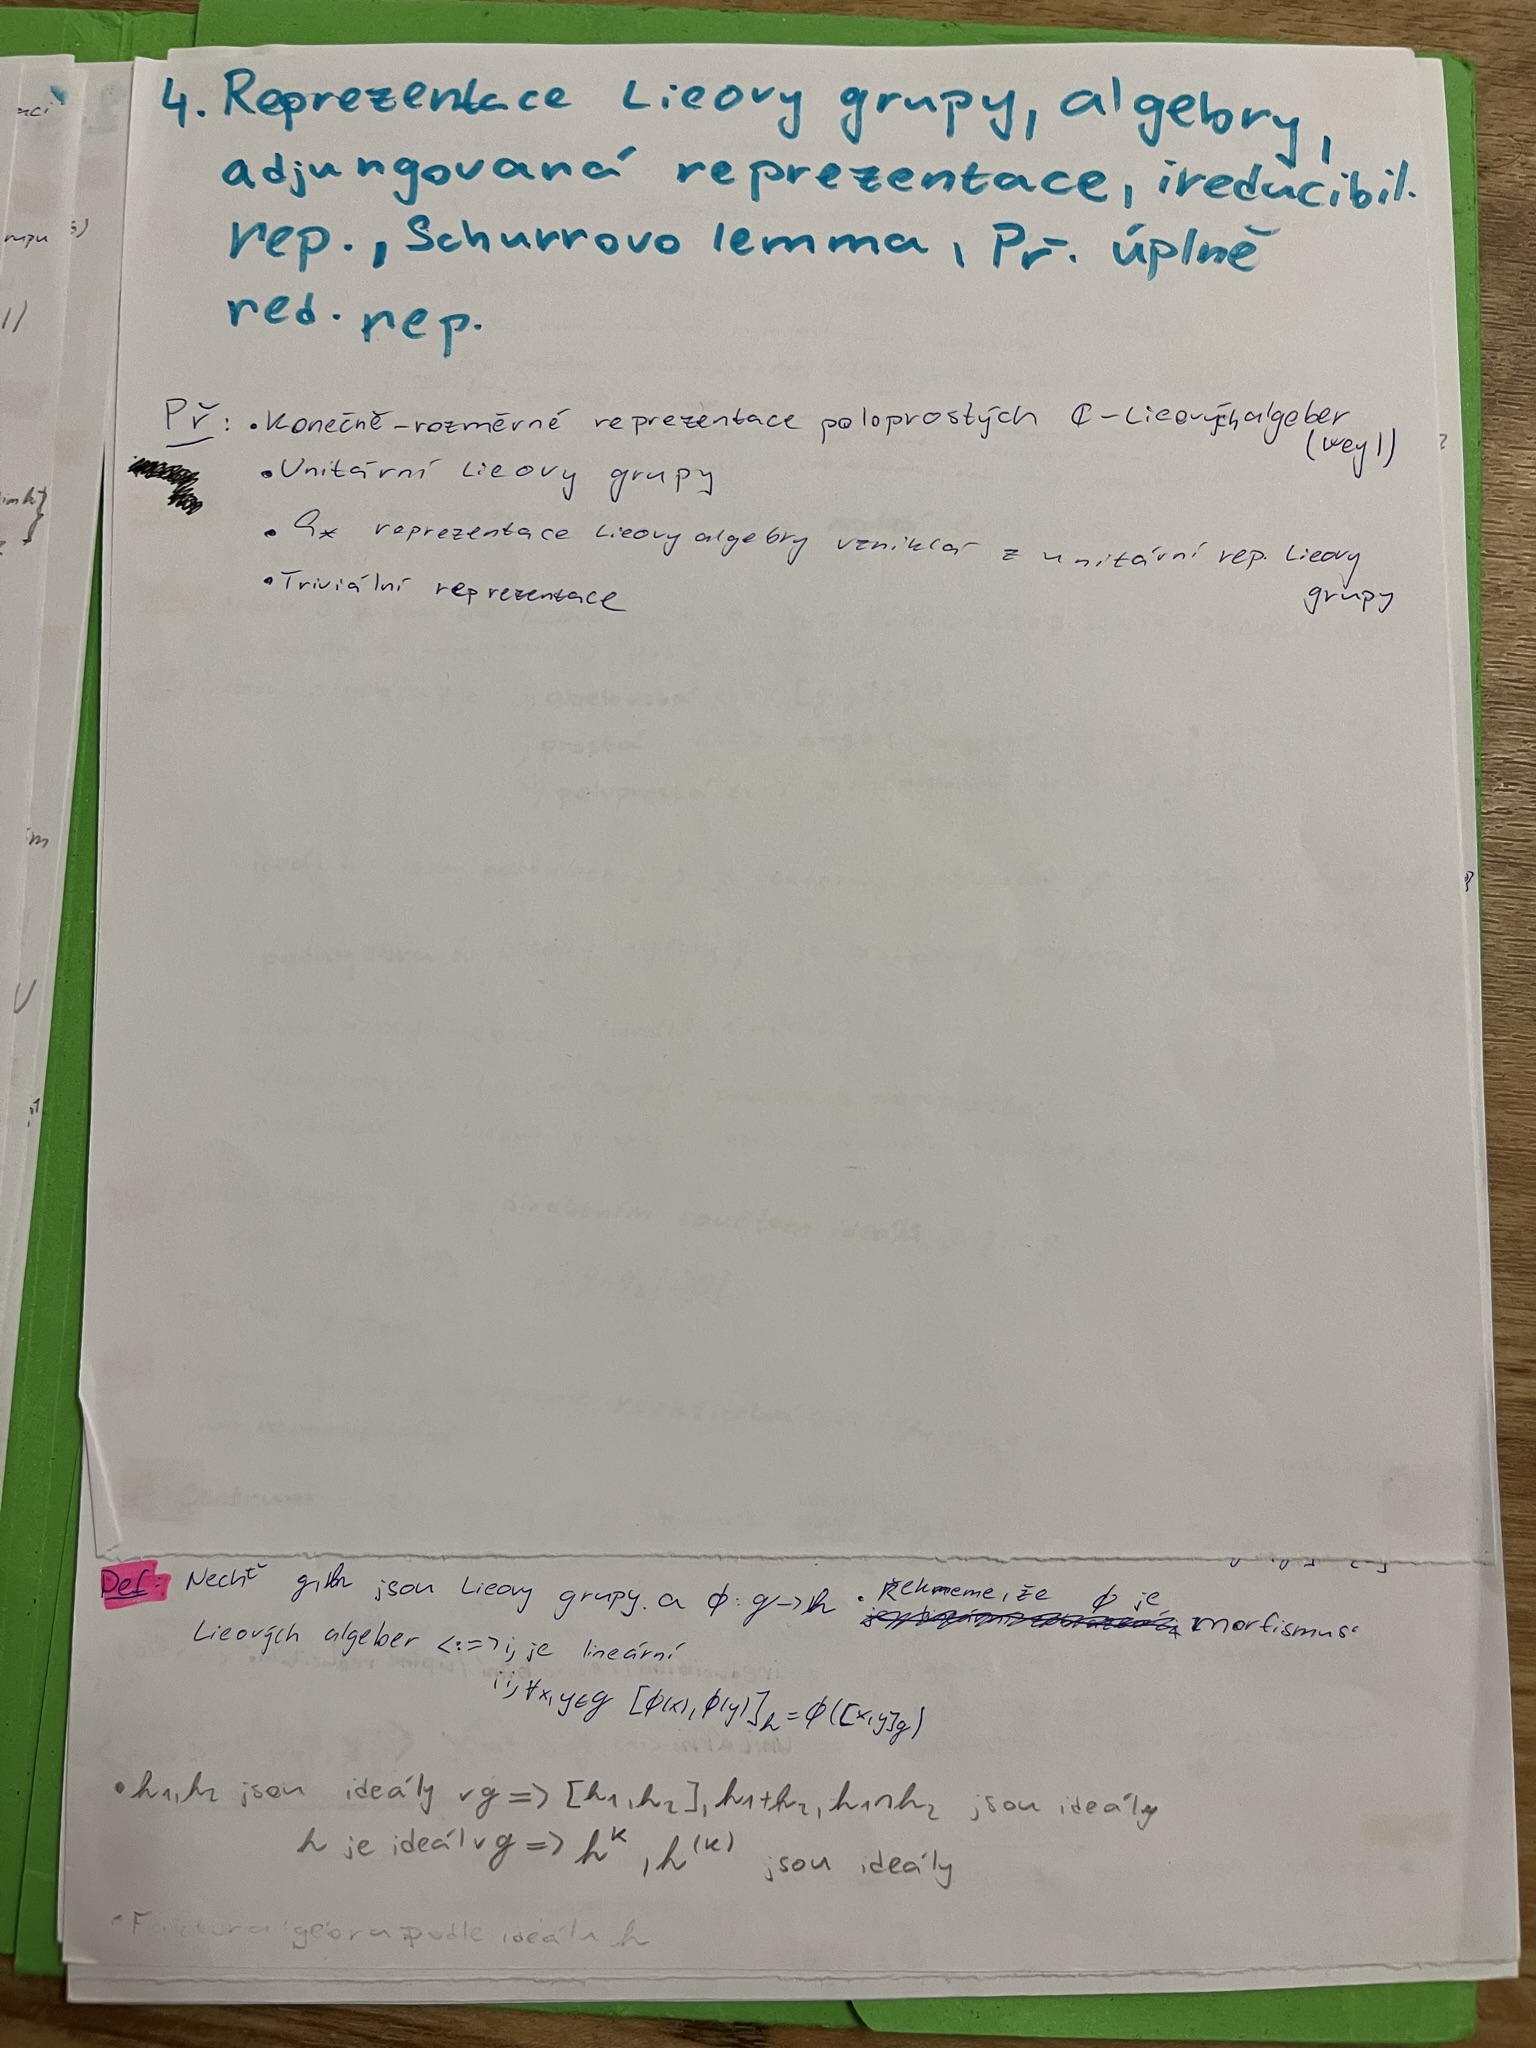 4. Reprezentace Lieovy grupy, algebry,
adjungovaná reprezentace, ireducibil.
rep., Schurrovo lemma, Př. úplně
red. rep.
Př: • Konečně-rozměrné reprezentace poloprostých ℂ-Lieových algeber
(Weyl)
• Unitární Lieovy grupy
• reprezentace Lieovy algebry vzniklá z unitární rep. Lieovy
grupy
• Triviální reprezentace
Def: Nechť g, h jsou Lieovy grupy a ϕ: g → h. Řekneme, že ϕ je
morfismus
Lieových algeber <:=> i, je lineární
ii, ∀x,y∈g [ϕ(x), ϕ(y)]_h = ϕ([x,y]_g)
• h₁, h₂ jsou ideály v g => [h₁, h₂], h₁+h₂, h₁∩h₂ jsou ideály
h je ideál v g => h^k, h^(k) jsou ideály
• Faktoralgebra podle ideálu h